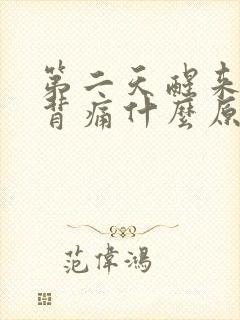 第二天醒来
背痛什麼原
范偉鴻